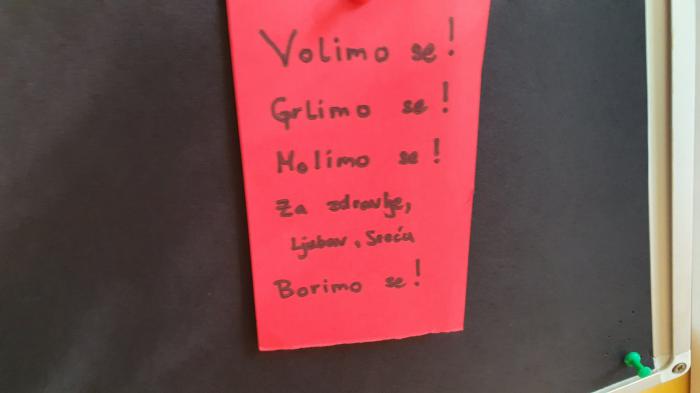 Volimo se!
Grlimo se!
Molimo se!
Za zdravlje,
Ljubav, Sreću
Borimo se!